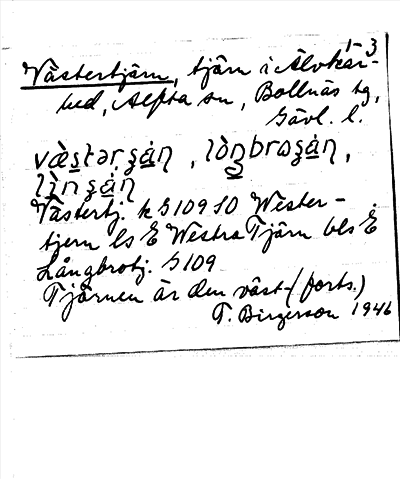 1-3
Västertjärn, tjärn i Älvkar-
hed, Alfta sn, Bollnäs tg,
Gävl. l.
Västertj. k S109 SO Wester-
tjern ls E Westra Tjärn bls E
Långbrotj. S109
Tjärnen är den väst- (forts.)
T. Birgerson 1946